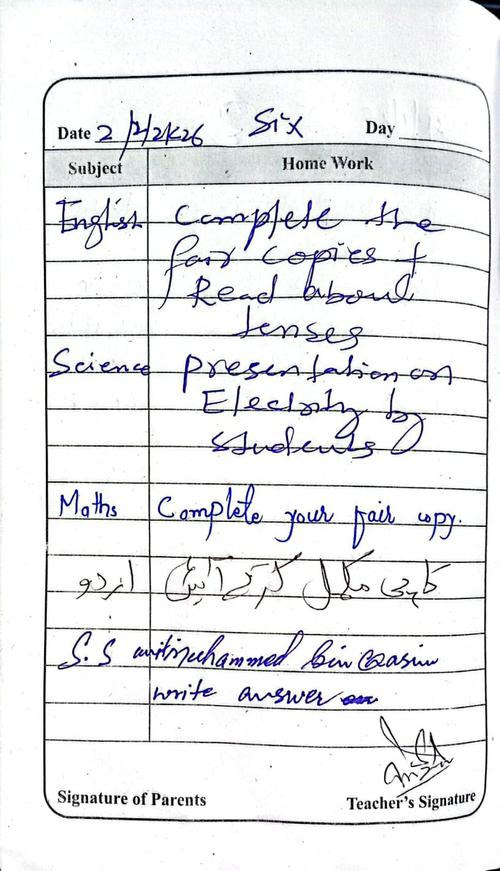 Date 2/2/2026 Six Day
Subject Home Work
English Complete the
fair copies +
Read about
tenses
Science presentation on
Electrity by
students
Maths Complete your fair copy.
اردو کاپی مکمل کر کے آئیں
S.S muhammed bin Qasim
write answer
Signature of Parents Teacher's Signature